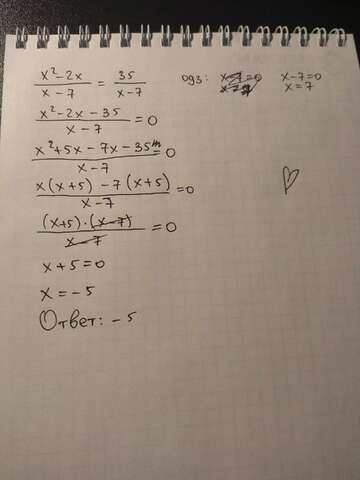 x²-2x / x-7 = 35 / x-7
ОДЗ: x-7=0 x-7=0
x=7 x=7
x²-2x-35 / x-7 = 0
x²+5x-7x-35 / x-7 = 0
x(x+5)-7(x+5) / x-7 = 0
(x+5)·(x-7) / x-7 = 0
x+5=0
x=-5
Ответ: -5